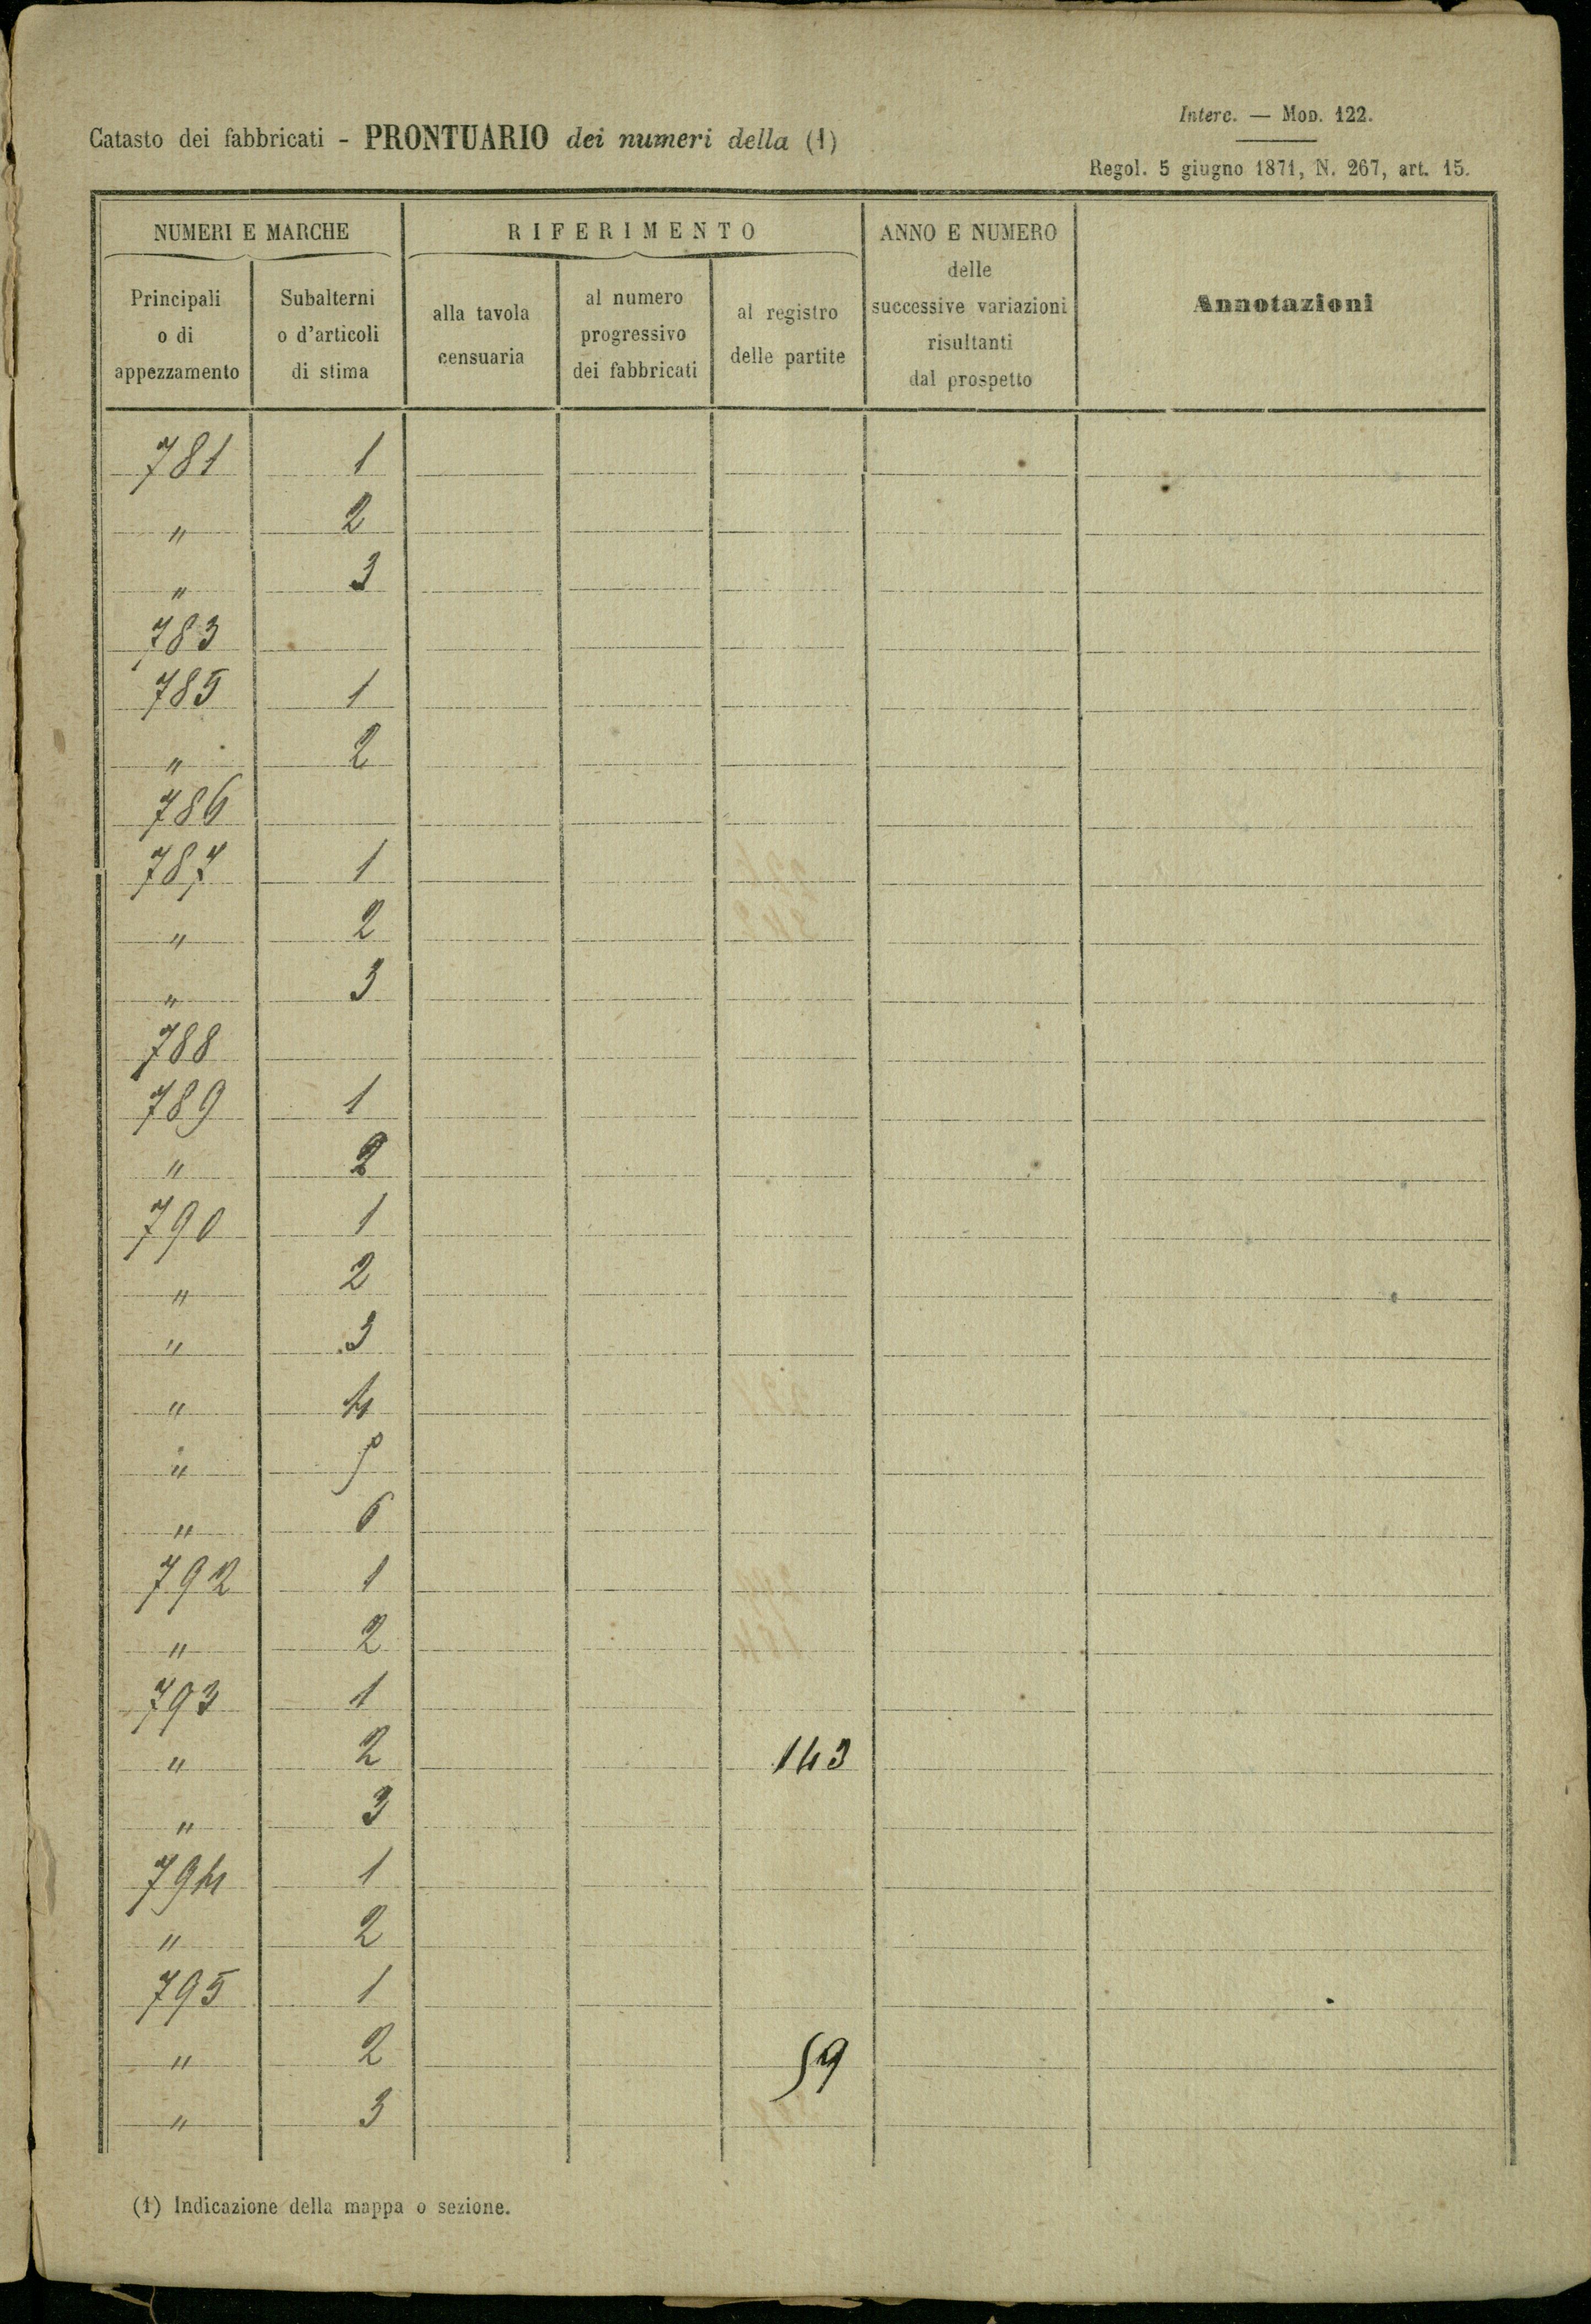 Interc. — Mod. 122.
Catasto dei fabbricati - PRONTUARIO dei numeri della (1)
Regol. 5 giugno 1871, N. 267, art. 15.
NUMERI E MARCHE
RIFERIMENTO
ANNO E NUMERO
delle
successive variazioni
risultanti
dal prospetto
Annotazioni
Principali
o di
appezzamento
Subalterni
o d'articoli
di stima
alla tavola
censuaria
al numero
progressivo
dei fabbricati
al registro
delle partite
781 1
" 2
" 3
783
785 1
" 2
786
787 1
" 2
" 3
788
789 1
" 2
790 1
" 2
" 3
" 4
" 5
" 6
792 1
" 2
793 1
" 2 143
" 3
794 1
" 2
795 1
" 2 59
" 3
(1) Indicazione della mappa o sezione.